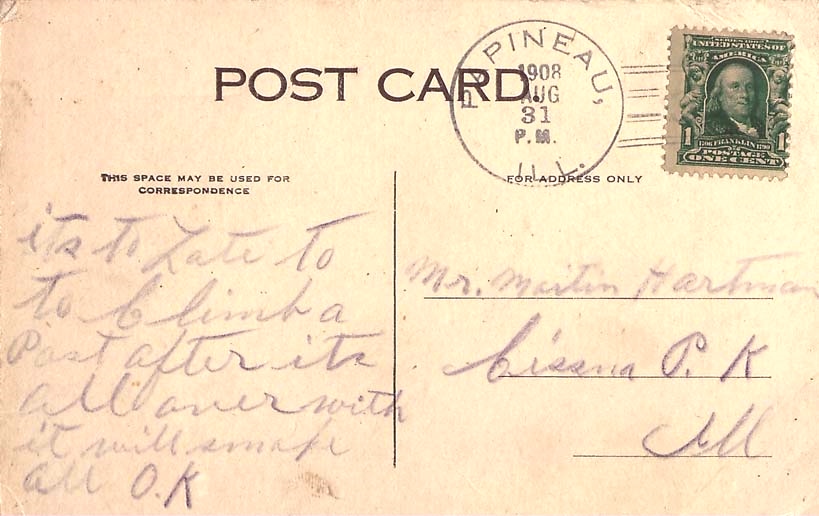 POST CARD.
PAPINEAU,
1908
AUG
31
P.M.
ILL.
SERIES 1902
UNITED STATES OF
AMERICA
1 1
1706 FRANKLIN 1790
POSTAGE
ONE CENT
THIS SPACE MAY BE USED FOR
CORRESPONDENCE
FOR ADDRESS ONLY
its to Late to
to Climb a
Post after its
all over with
it will
all O.K
Mr. Martin Hartman
Cissna P. K
Ill